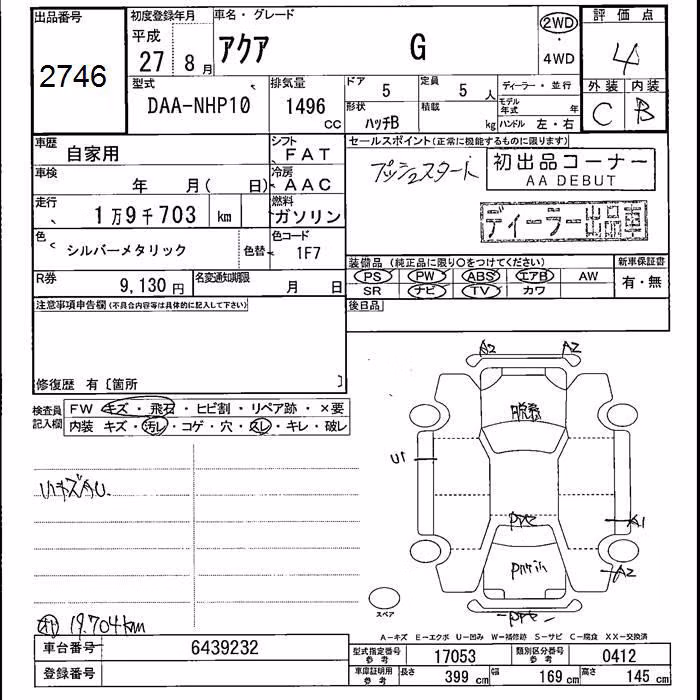 出品番号
2746
初度登録年月
平成
27 8月
車名・グレード
アクア G
2WD
・
4WD
評価点
4
外装 内装
C B
型式
DAA-NHP10
排気量
1496 cc
ドア 5
定員 5 人
ディーラー・並行
形状 ハッチB
積載 kg
モデル年式 年
ハンドル 左・右
車歴 自家用
シフト FAT
車検 年 月( 日)
冷房 AAC
走行 1万9千703 km
燃料 ガソリン
色 シルバーメタリック
色替
色コード 1F7
R券 9,130 円
名変通知期限 月 日
セールスポイント(正常に機能するものに限ります)
プッシュスタート
初出品コーナー
AA DEBUT
ディーラー出品車
装備品(純正品に限り○をつけてください)
新車保証書
PS PW ABS エアB AW
有・無
SR ナビ TV カワ
後日品
注意事項申告欄(不具合内容等は具体的に記入して下さい)
修復歴 有〔箇所 〕
検査員記入欄
FW キズ・飛石・ヒビ割・リペア跡・×要
内装 キズ・汚レ・コゲ・穴・スレ・キレ・破レ
A2 A2
U1
A1
A2
スペア
19.704km
A-キズ E-エクボ U-凹み W-補修跡 S-サビ C-腐食 XX-交換済
車台番号 6439232
登録番号
型式指定番号参考 17053
類別区分番号参考 0412
車庫証明用参考 長さ 399 cm 幅 169 cm 高さ 145 cm